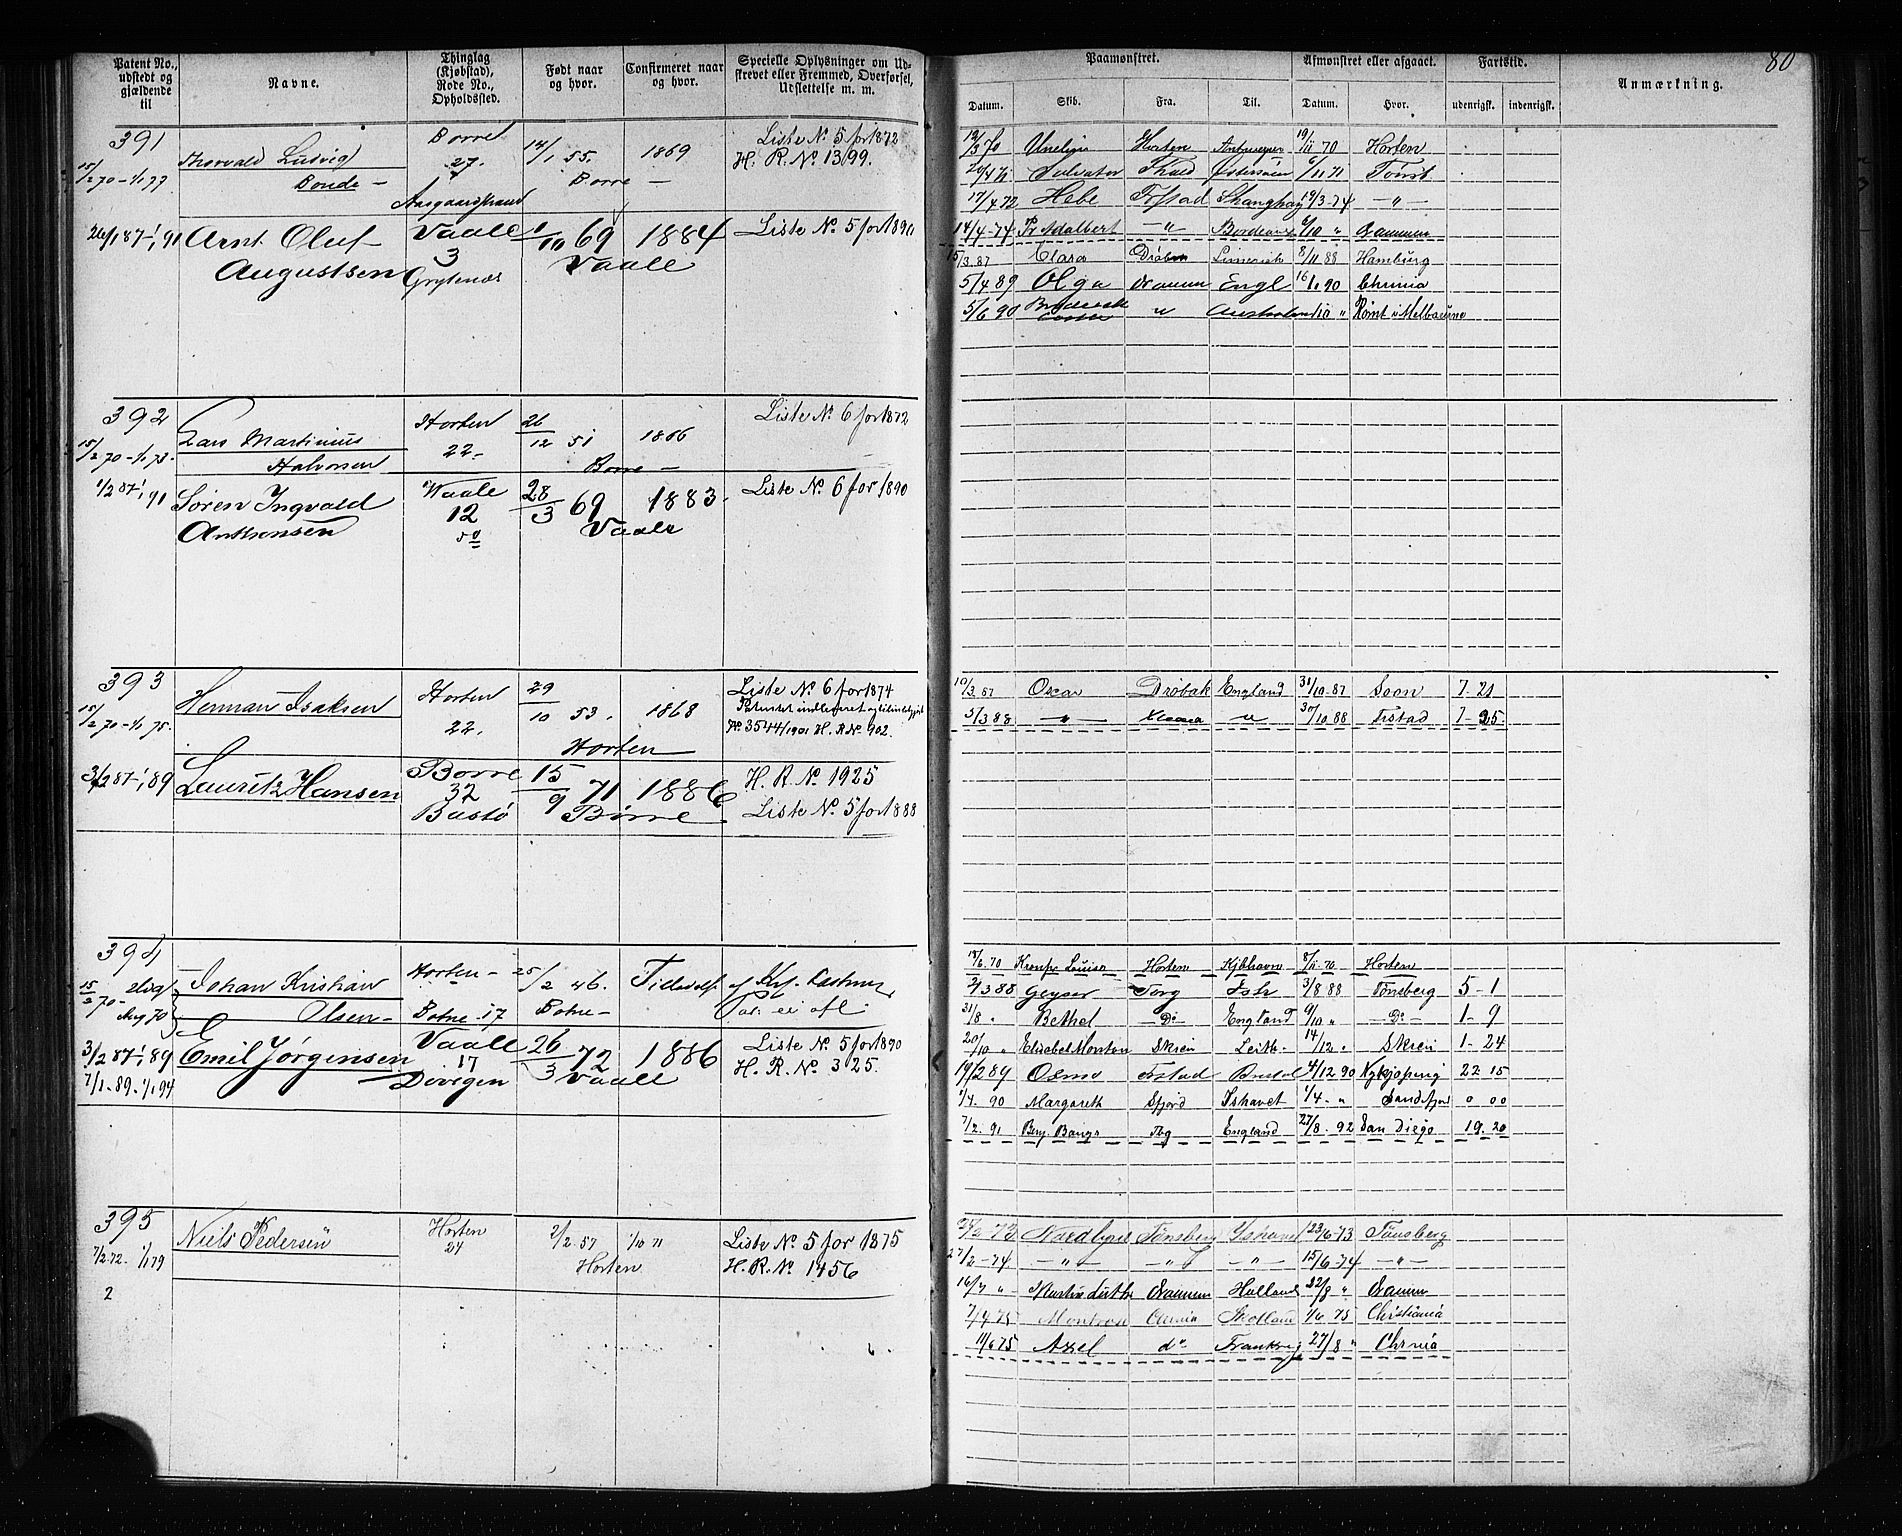 80
Patent No., udstedt og gjældende til
Navne.
Thinglag (Kjøbstad), Rode No., Opholdssted.
Født naar og hvor.
Confirmeret naar og hvor.
Specielle Oplysninger om Udskrevet eller Fremmed, Overførsel, Udslettelse m. m.
Paamønstret.
Afmønstret eller afgaaet.
Fartstid.
Anmærkning.
Datum. Skib. Fra. Til. Datum. Hvor. udenrigsk. indenrigsk.
391
15/2 70 - 1/1 77
Thorvald Ludvig Bonde -
Borre 27. Aasgaardstrand
14/1 55. Borre - 1869
Liste No. 5 for 1872
H. R. No. 1399.
26/1 87 - 1/1 91
Arnt Oluf Augustsen
Vaale 3 Grytenæs
1/10 69 1884 Vaale
Liste No. 5 for 1890
12/3 70 Horten 19/11 70 Horten
Salvator 6/11 71 Tønsb
17/4 72 Hebe Frstad Shanghay 19/3-74 - " -
14/4-74 Pr Adalbert - " - Bordeaux 6/10 " Drammen
15/3.87 Clara Drøbak Limerick 8/11 88 Hamburg
5/4 89 Olga Drammen Engl 16/1 90 Chrnia
5/6 90 " Australien " Rømt i Melbourne
392
15/2 70 - 1/1 73.
Lars Martinius Halvorsen
Horten 22. -
26/12 51 1866 Borre -
Liste No. 6 for 1872
1/2 87 - 1/1 91
Søren Ingvald Anthonsen
Waale 12
28/3 69 1883. Vaale
Liste No. 6 for 1890
393
15/2 70 - 1/1 75.
Herman Isaksen
Horten 22.
29/10 53. 1868 Horten
Liste No. 6 for 1874
Patentet indleveret
No. 3544/1901 H. R No. 902.
3/2 87 - 1/1 89
Lauritz Hansen
Borre 32 Bastø
15/9 71 1886 Borre
H. R. No. 1925
Liste No. 5 for 1888
10/3.87 Oscar Drøbak England 31/10-87 Soon 7-21
5/3 88 - " - " 30/10 88 Frstad 7-25
394
15/2 70 -
Johan Kristian Olsen -
Horten - Botne - 17
25/2 46. Botne -
3/2 87 - 1/1 89
7/1-89. - 1/1 94
Emil Jørgensen
Vaale 17 Døvigen
26/3 72 1886 Vaale
Liste No. 5 for 1890
H. R. No. 325.
18/6.70 Kronpr Louise Horten Kjbhavn 8/11.70 Horten
2/3 88 Geyser Tbrg Ishv 3/8 88 Tønsberg 5-1
31/8 " Bethel - Do - England 9/10 " - Do - 1-9
20/10 " Elisabet Morton Skien Leith - 14/12 " Skien 1-24
19/2 89 Osmo Frstad Bristol 4/12 90 Nykjøping 22 15
1/4-90 Margareth Sfjord Ishavet 1/4 - " Sandefjord 0 00
7/2.91 Benj. Bangs Tbg England 27/8.92 San Diego 19.20
395
7/2.72. 1/1 79
2
Niels Pedersen
Horten 24
2/2.57 1/10 71 Horten
Liste No. 5 for 1875
H. R. No. 1456
25/2 73 Nordlyset Tønsberg Ishavet 23/6-73 Tønsberg
27/2-74 - " - - " - - " - 15/6-74 - " -
16/7 " Drammen Holland 22/8 " Drammen
7/4 75 Chrnia 1/6 75 Christiania
11/6 75 Axel do Frankrig 27/8 " Chrnia